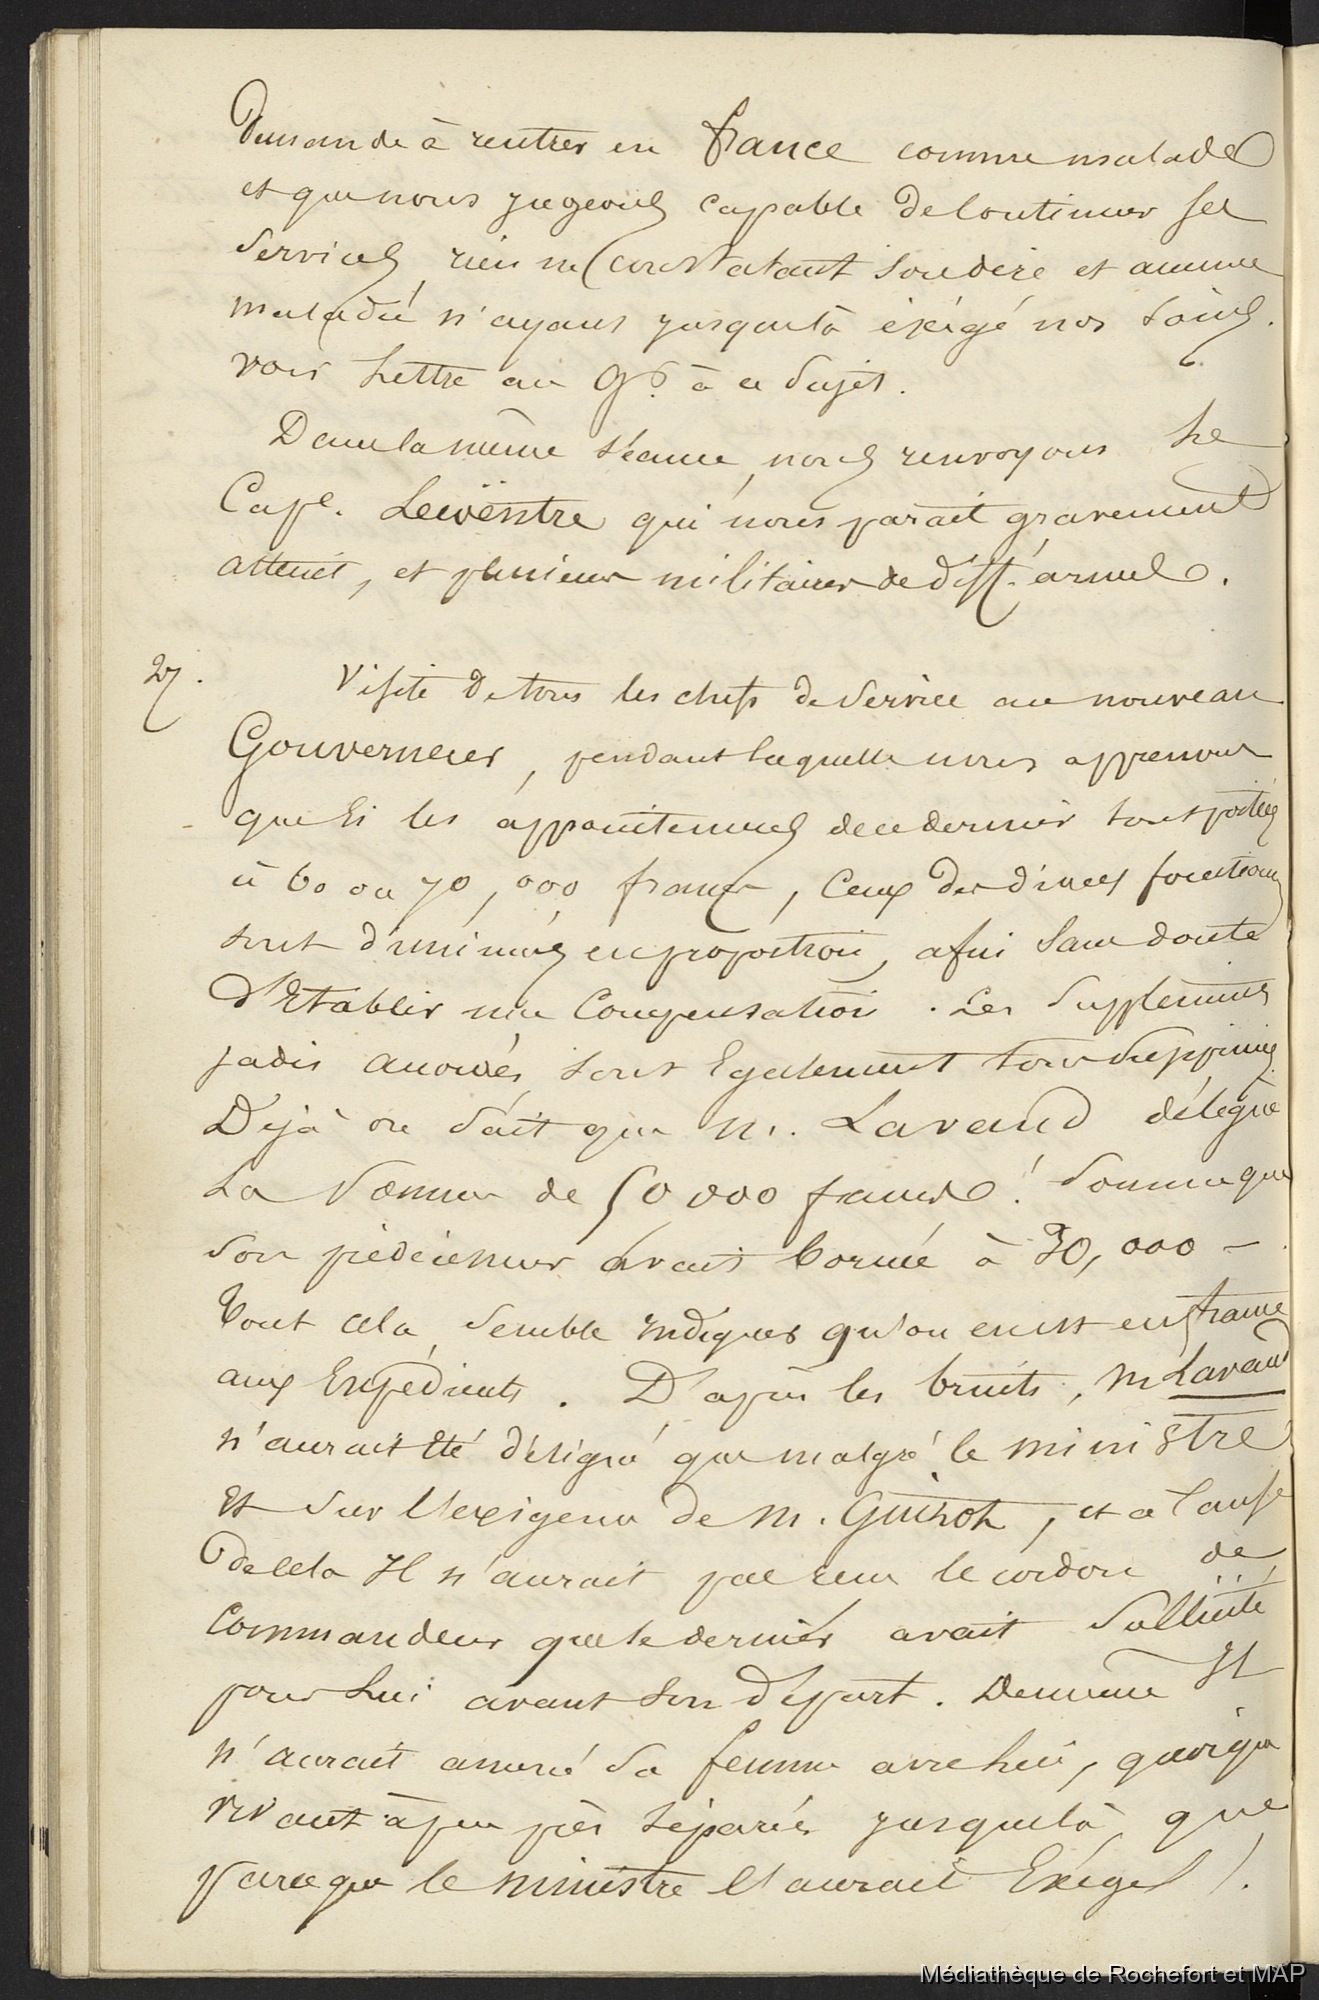 Demande à rentrer en france comme malade
et que nous jugeons capable de Continuer ses
Services, rien ne Constatant son dire et aucune
maladie n'ayant jusque là éxigé nos soins.
voir Lettre au Gr. à ce sujet.
Dans la même séance, nous renvoyons Le
Cape. qui nous parait gravement
atteint, et plusieurs militaires de diff. armes.
27. Visite de tous les chefs de Service au nouveau
Gouverneur, pendant laquelle nous apprenons
que si les appointements de ce dernier sont portés
à 60 ou 70,000 francs, Ceux des divers fonctions
sont diminués en proportion, afin sans doute
d'Etablir une Compensation. Les Suppléments
jadis alloués, sont Egalement tous supprimés
Déjà on sait que M. Lavaud délègue
La Somme de 50 000 francs! Somme que
son prédécesseur avait bornée à 30,000 -
Tout cela semble indiquer qu'on en est en france
aux Expédients. D'après les bruits, M Lavaud
n'aurait été désigné que malgré le ministre
Et sur l'exigence de M. Guizot, et à Cause
de cela Il n'aurait pas reçu le cordon de
Commandeur que le dernier avait Sollicité
pour Lui avant son départ. De même Il
n'aurait amené sa femme avec lui, quoique
vivant à peu près séparés jusque là, que
parce que le ministre l'aurait Exigé!.
Médiathèque de Rochefort et MAP